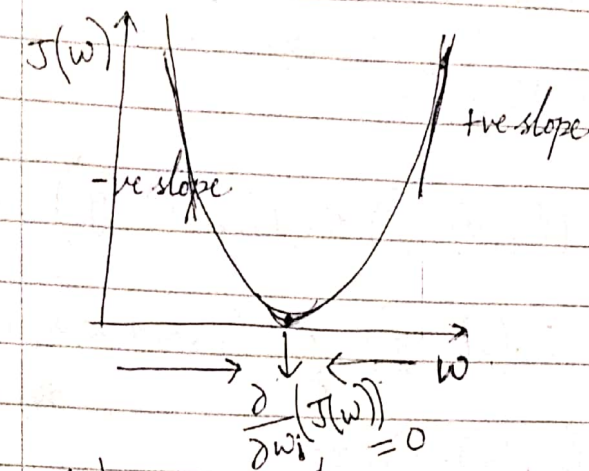 J(w)
+ve slope
-ve slope
w
∂/∂wi (J(w)) = 0